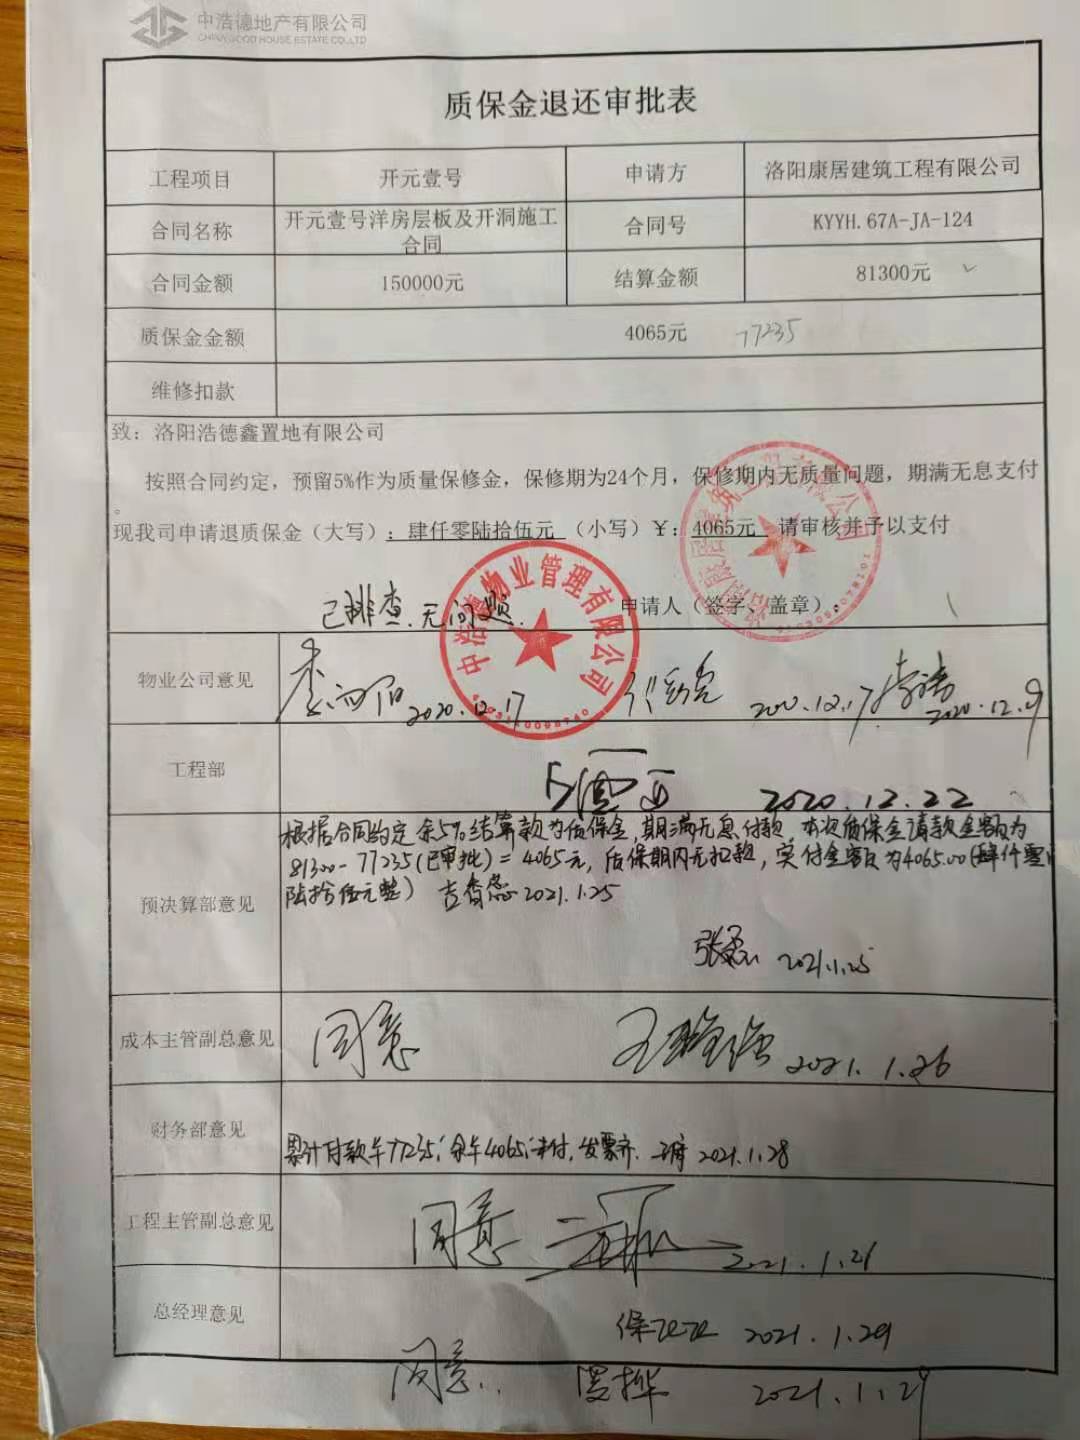 中浩德地产有限公司
质保金退还审批表
工程项目 开元壹号 申请方 洛阳康居建筑工程有限公司
合同名称 开元壹号洋房层板及开洞施工
合同 合同号 KYYH.67A-JA-124
合同金额 150000元 结算金额 81300元 ✓
质保金金额 4065元 77235
维修扣款
致：洛阳浩德鑫置地有限公司
按照合同约定，预留5%作为质量保修金，保修期为24个月，保修期内无质量问题，期满无息支付
。
现我司申请退质保金（大写）：肆仟零陆拾伍元 （小写）￥：4065元 请审核并予以支付
已排查.无问题.
申请人（签字、盖章）：
中浩德物业管理有限公司
物业公司意见 2020.12.17 2020.12.17 李涛
2020.12.19
工程部 2020.12.22
根据合同约定余5%结算款为质保金,期满无息付款,本次质保金请款金额为
81300-77235(已审批)=4065元,质保期内无扣款,实付金额为4065.00(肆仟零
预决算部意见 陆拾伍元整) 2021.1.25
张磊 2021.1.25
成本主管副总意见 同意 2021.1.26
财务部意见 累计付款￥77235;余￥4065;未付,发票齐. 2021.1.28
工程主管副总意见 同意 2021.1.26
总经理意见 2021.1.29
同意. 2021.1.29